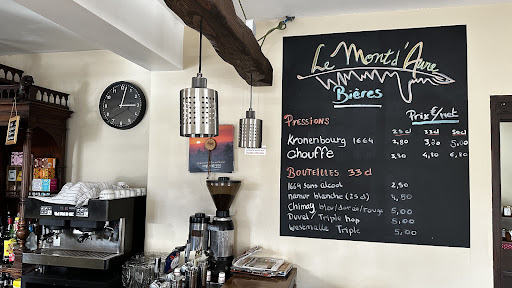 Le Mont d'Aure
Bières
Prix €/net
Pressions
25 cl 33 cl 50 cl
Kronenbourg 1664 2,80 3,90 5,00
Chouffe 3,30 4,80 6,80
Bouteilles 33 cl
1664 sans alcool 2,50
namur blanche (25 cl) 4,50
Chimay bleu/dorée/rouge 5,00
Duvel/Triple hop 5,00
Westmalle Triple 5,00